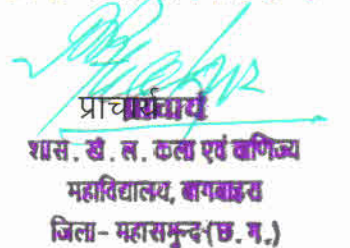 प्राचार्य
शास. खे. ल. कला एवं वाणिज्य
महाविद्यालय, बागबाहरा
जिला- महासमुन्द (छ. ग.)